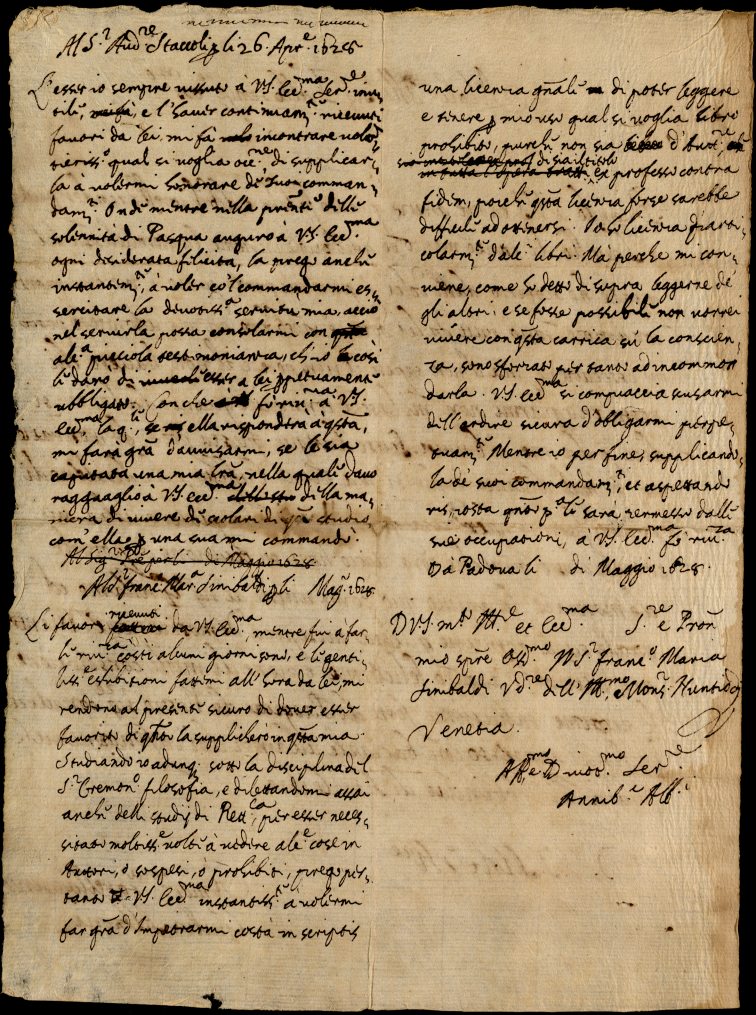 Al S.r Aud.re Staccoli p li 26 Apr.e 1628
L'esser io sempre vissuto à V.S. Ecc.ma Ser.e inu¬
tile, e l'haver continuam.te ricevuti
favori da lei, mi fà incontrare volo¬
tieriss.o qual si voglia occ.ne di supplicar¬
la à volermi honorare de' suoi comman¬
dam.ti Onde mentre nella pnte delle
solennità di Pasqua auguro à V.S. Ecc.ma
ogni desiderata felicità, la prego anche
instantem.te à voler co 'l commandarmi es¬
sercitare la devotiss.a servitu mia, acciò
nel servirla possa consolarmi con
alc.a picciola testimonianza, ch'io
le darò d'esser a lei ppetuamente
obbligato. Con che fo riv.za à V.S.
Ecc.ma la q.le, se ella risponderà a qsta,
mi farà gra d'avvisarmi, se le sia
capitata una mia lra, nella quale davo
ragguaglio à V.S. Ecc.ma della ma¬
niera di vivere de scolari di qsto studio
com'ella p una sua mi commandò.
di Maggio 1628
Al S.r Franc. Mar.a Sinibaldi p li Mag.o 1628
Li favori ricevuti da V.S. Ecc.ma, mentre fui a far¬
le riv.za costì alcuni giorni sono, e le genti¬
liss.e esibitioni fattemi all'hora da lei, mi
rendono al presente sicuro di dover esser
favorito di qto la supplicherò in qsta mia.
Studiando io adunq. sotto la disciplina del
S.r Cremon.o filosofia, e dilettandomi assai
anche delli studij di Rett.ca, p esser neces¬
sitato moltiss.e volte à vedere alc.e cose in
Auttori, o sospesi, o prohibiti, prego per¬
tanto V.S. Ecc.ma instantiss.te a volermi
far gra d'impetrarmi costà in scriptis
una licenza gnale di poter leggere
e tenere p mio uso qual si voglia libro
prohibito, purche non sia d'Aut.re,
di sai titolo
ex professo contra
fidem, poiche qsta licenza forse sarebbe
difficile ad ottenersi. Io ho licenza p parti¬
colarm.te d'alc. libri. Ma perche mi con¬
viene, come hò detto di sopra leggerne de
gli altri, e se fosse possibile non vorrei
vivere con qsta carrica sù la conscien¬
za, sono sforzato per tanto ad incommon
darla. V.S. Ecc.ma si compiaccia scusarmi
dell'ardire sicura d'obligarmi perpe¬
tuam.te Mentre io per fine, supplicando¬
la de' suoi commandam.ti, et aspettando
risposta qnto p.a le sarà permesso dalle
sue occupationi, à V.S. Ecc.ma fò riv.za
Dà Padova li di Maggio 1628.
D V.S. m.to Ill.e et Ecc.ma S.re e Pron
mio spre Oss.mo Il S.r Franc.o Maria
Sinibaldi Ud.re dell'Ill.mo Mons.r Nuntio
Venetia.
Aff.mo e Divot.mo Ser.re
Annib.e Alb.i